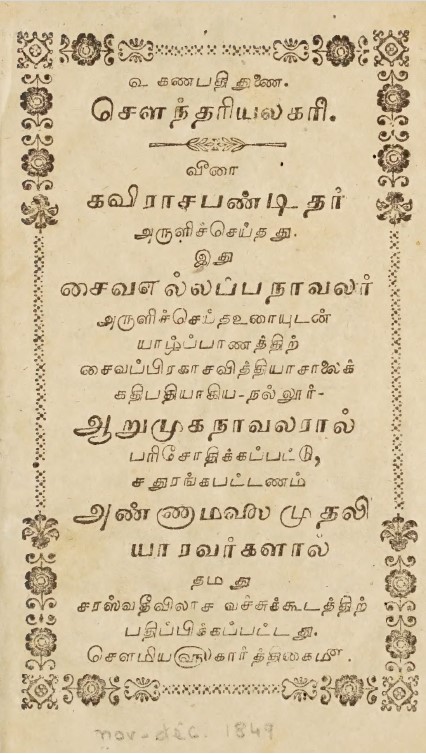 உ கணபதி துணை.
சௌந்தரியலகரி.
வீரை
கவிராசபண்டிதர்
அருளிச்செய்தது.
இது
சைவஎல்லப்பநாவலர்
அருளிச்செய்தஉரையுடன்
யாழ்ப்பாணத்திற்
சைவப்பிரகாசவித்தியாசாலைக்
கதிபதியாகிய-நல்லூர்-
ஆறுமுகநாவலரால்
பரிசோதிக்கப்பட்டு,
சதுரங்கபட்டணம்
அண்ணாமலை முதலி
யாரவர்களால்
தமது
சரஸ்வதீவிலாச வச்சுக்கூடத்திற்
பதிப்பிக்கப்பட்டது.
சௌமியவ௵கார்த்திகைமீ.
nov-déc. 1849